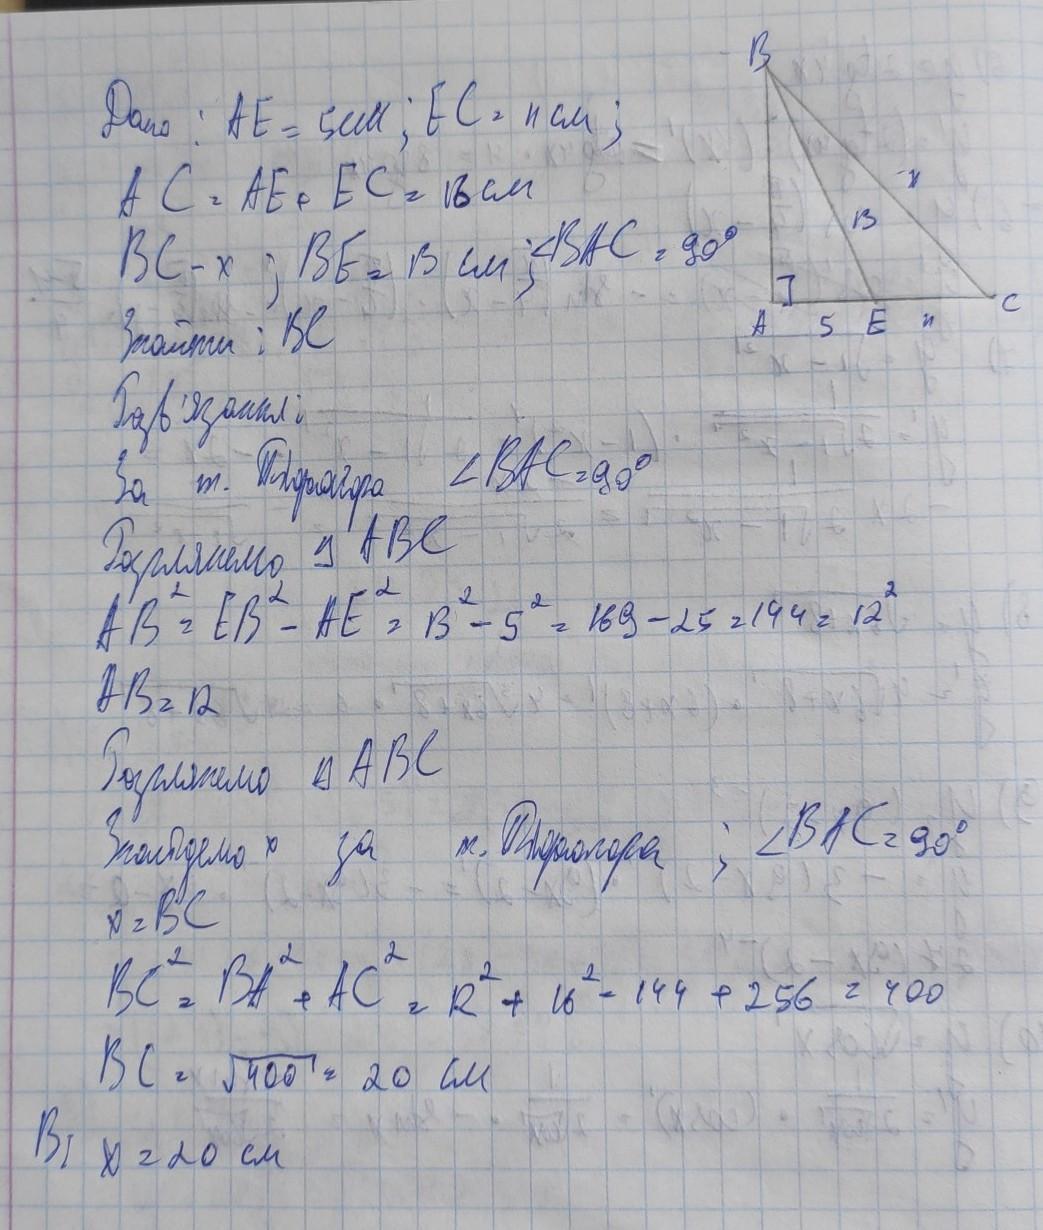 Дано: AE = 5см; EC = 11 см;
AC = AE + EC = 16 см
BC - x; BE = 13 см; ∠BAC = 90°
Знайти: BC
Розв'язання:
За т. Піфагора ∠BAC = 90°
Розглянемо △ ABC
AB² = EB² - AE² = 13² - 5² = 169 - 25 = 144 = 12²
AB = 12
Розглянемо △ ABC
Знайдемо x за т. Піфагора; ∠BAC = 90°
x = BC
BC² = BA² + AC² = 12² + 16² = 144 + 256 = 400
BC = √400 = 20 см
В: x = 20 см
B
x
13
A 5 E 11 C